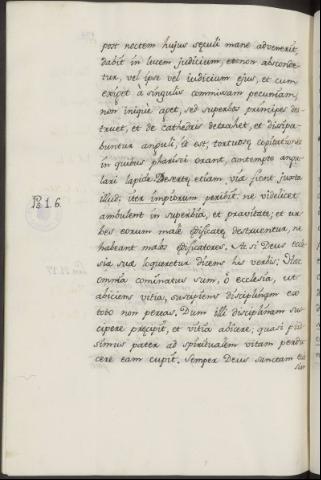 post noctem hujus seculi mane advenerit,
dabit in lucem judicium, et non absconde
tur, vel ipse vel iudicium ejus, et cum
exiget à singulis commissam pecuniam,
non iniquè aget, sed superbos principes des-
truet, et de cathedris detrahet, et dissipa
buntur anguli, id est, tortuosę cogitationes
in quibus pharisei orant, contempto angu
lari lapide. Desertę etiam vię fient juxta
illud: iter impiorum peribit. ne videlicet
Ps. 1. 6.
ambulent in superbia, et pravitate; et ur
bes eorum malè ędificatę destruentur, ne
habeant malos ędificatores. At si Deus eccle
sia sua loqueretur dicens his verbis: Hæc
omnia cominatus sum, ô ecclesia, ut
abiciens vitia, suscipiens disciplinam ex
toto non pereas. Dum illi disciplinam sus
cipere pręcipit, et vitia abicere; quasi piis
simus pater ad spiritualem vitam perdu
cere eam cupit. Semper Deus sanctam